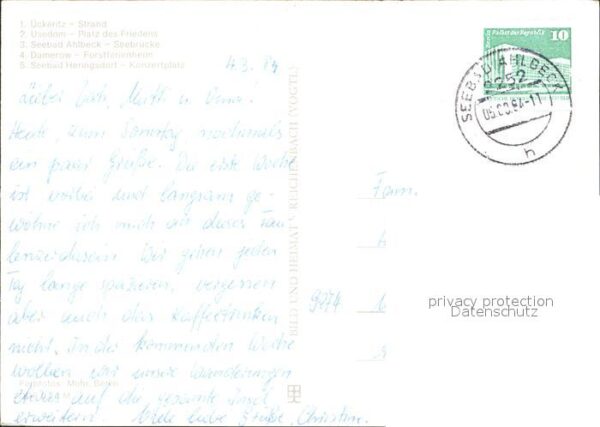 1. Ückeritz – Strand
2. Usedom – Platz des Friedens
3. Seebad Ahlbeck – Seebrücke
4. Damerow – Forstferienheim
5. Seebad Heringsdorf – Konzertplatz
4.3.84
Lieber Vati, Mutti u. Oma.
Heute, zum Sonntag nochmals
ein paar Grüße. Die erste Woche
ist vorbei und langsam ge-
wöhne ich mich an dieses Fau-
lenzerdasein. Wir gehen jeden
Tag lange spazieren, vergessen
aber auch das Kaffeetrinken
nicht. In der kommenden Woche
wollen wir unsere Wanderungen
etwas auf die gesamte Insel
erweitern. Viele liebe Grüße, Christine.
Farbfotos: Mohr, Berlin
BILD UND HEIMAT REICHENBACH (VOGTL)
Palast der Republik
10
SEEBAD AHLBECK
2252
05.03.84-11
h
Fam.
9274
privacy protection
Datenschutz